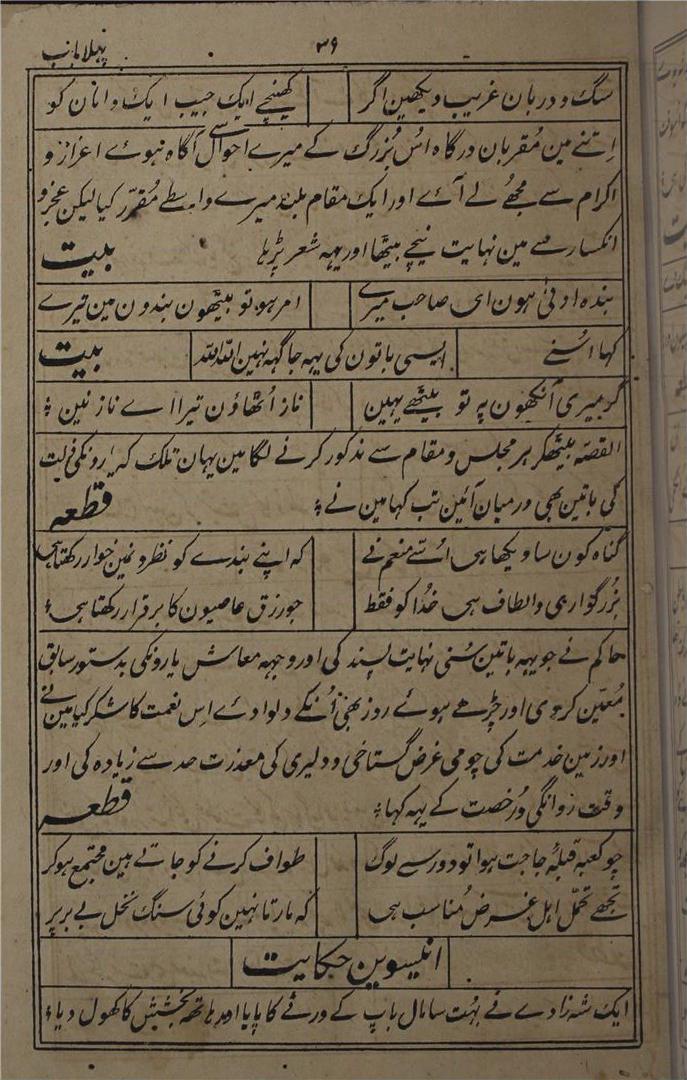 ۳۶ پہلا باب
سگ و دربان غریب دیکھین اگر کھینچے ایک جیب ایک دامان کو
اِتنے مین مُقربان درگاہ اُس بُزرگ کے میرے احوال سے آگاہ ہوئے اعزاز و
اکرام سے مجھے لے آئے اور ایک مقام بلند میرے واسطے مُقرّر کیا لیکن عجز و
انکسار سے مین نہایت نیچے بیٹھا اور یہہ شعر پڑہا بیت
بندہ ادنیٰ ہون ای صاحب میرے امر ہو تو بیٹھون بندون مین تیرے
کہا اسنے ایسی باتون کی یہہ جاگہہ نہین اللہ اللہ بیت
گر میری آنکھون پر تو بیٹھے یہین ناز اُٹھاؤن تیرا اے نازنین
القصّہ بیٹھکر ہر مجلس و مقام سے مذکور کرنے لگا مین یہان تلک کہ یارونکی ذلت
کی باتین بھی درمیان آئین تب کہا مین نے قطعہ
گناہ کون سا دیکھا ہی اُسے منعم نے کہ اپنے بندے کو نظرونمین خوار رکھتا ہی
بُزرگواری و الطاف ہی خُدا کو فقط جو رزق عاصیون کا برقرار رکھتا ہی
حاکم نے جو یہہ باتین سُنی نہایت پسند کی اور وجہہ معاش یارونکی بدستور سابق
مُعیّن کر دی اور چڑھے ہوئے روز بھی اُنکے دلوا دئے اس نعمت کا شکر کیا مین نے
اور زمین خدمت کی چومی غرض گستاخی و دلیری کی معذرت حد سے زیادہ کی اور
وقت روانگی و رُخصت کے یہہ کہا قطعہ
جو کعبہ قبلۂ حاجت ہوا تو دور سے لوگ طواف کرنے کو جاتے ہین مجتمع ہو کر
تجھے تحمّل اہل غرض مُناسب ہی کہ مارتا نہین کوئی سنگ نخل بے بر پر
انیسوین حکایت
ایک شہزادے نے بہُت سا مال باپ کے ورثے کا پایا اور ہاتھہ بخشش کا کھول دیا